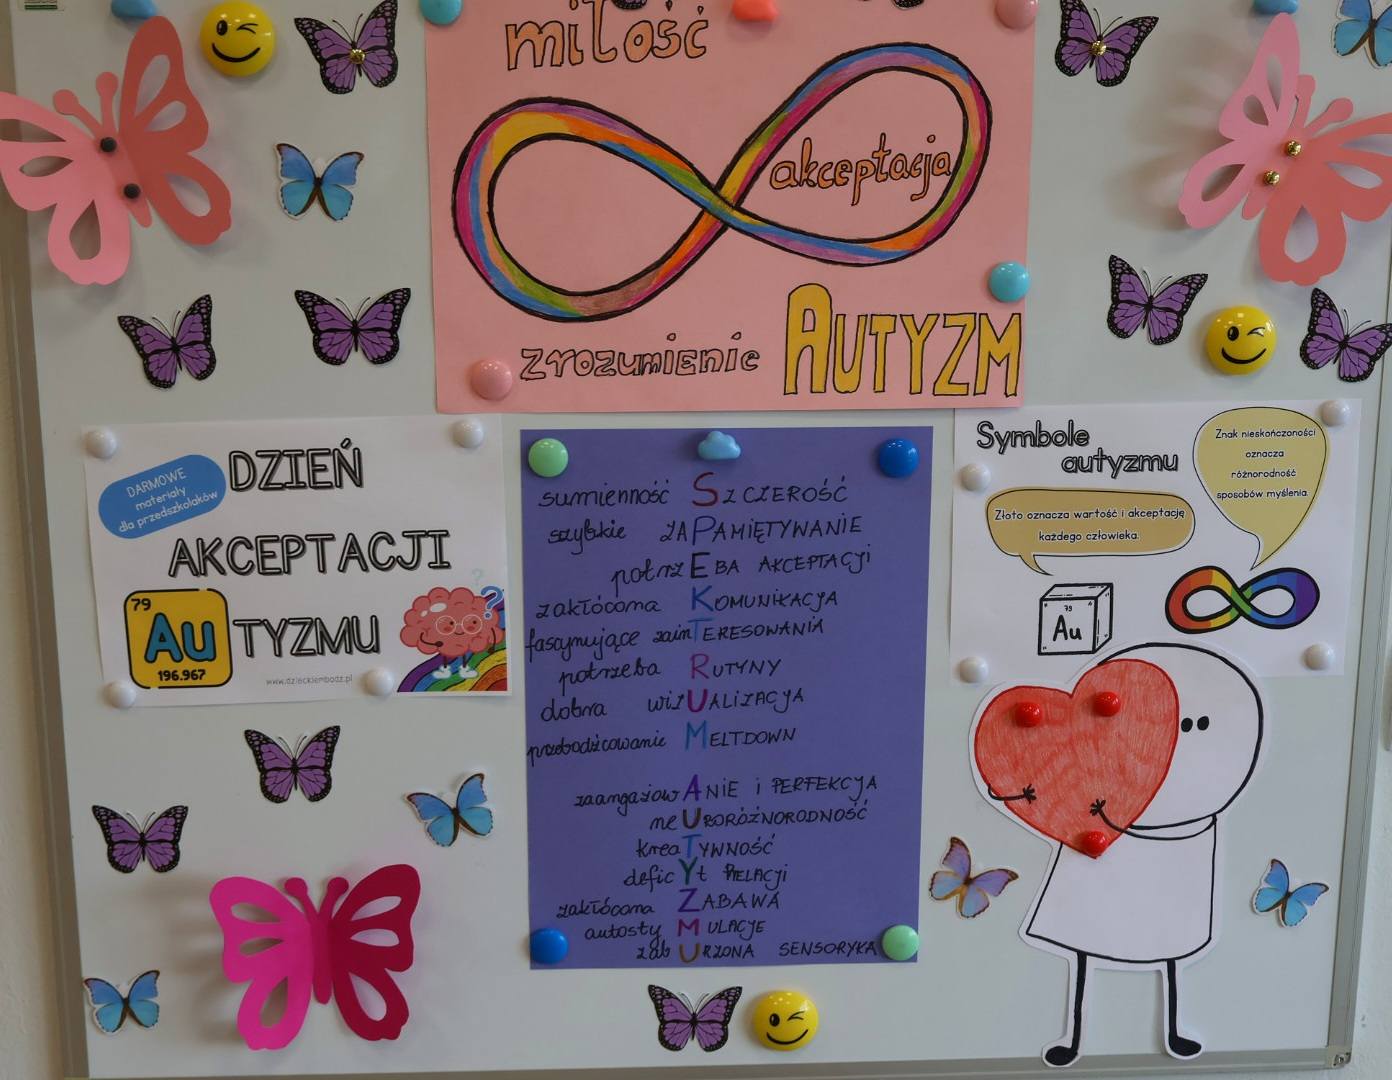 miłość
akceptacja
zrozumienie
AUTYZM
DARMOWE
materiały
dla przedszkolaków
DZIEŃ
AKCEPTACJI
79
Au
196.967
TYZMU
www.dzieckiembadz.pl
sumienność SZCZEROŚĆ
szybkie ZAPAMIĘTYWANIE
potrzEBA AKCEPTACJI
zakłócona KOMUNIKACJA
fascynujące zainTERESOWANIA
potrzeba RUTYNY
dobra wizUALIZACJA
przebodźcowanie MELTDOWN
zaangażowANIE i PERFEKCJA
neUROROŻNORODNOŚĆ
kreaTYWNOŚĆ
deficYt RELACJI
zakłócona ZABAWA
autostyMULACJE
zabURZONA SENSORYKA
Symbole
autyzmu
Znak nieskończoności
oznacza
różnorodność
sposobów myślenia.
Złoto oznacza wartość i akceptację
każdego człowieka.
79
Au